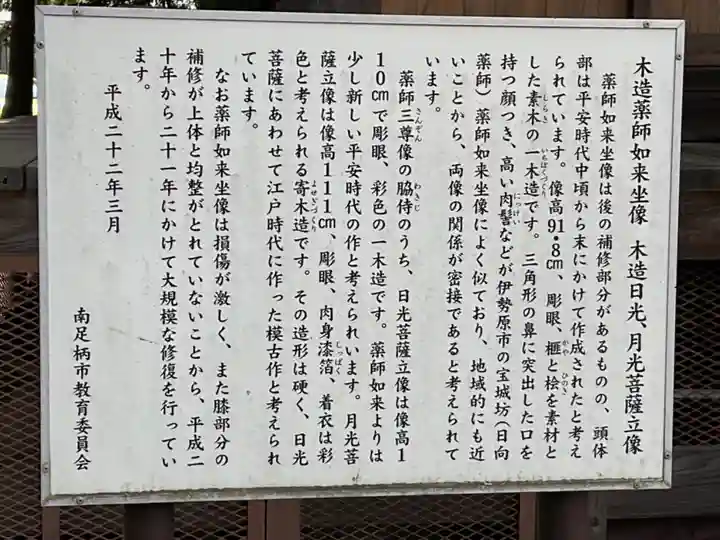 木造薬師如来坐像 木造日光、月光菩薩立像
薬師如来坐像は後の補修部分があるものの、頭体
部は平安時代中頃から末にかけて作成されたと考え
られています。像高91・8㎝、彫眼、榧と桧を素材と
した素木の一木造です。三角形の鼻に突出した口を
持つ顔つき、高い肉髻などが伊勢原市の宝城坊(日向
薬師)薬師如来坐像によく似ており、地域的にも近
いことから、両像の関係が密接であると考えられて
います。
薬師三尊像の脇侍のうち、日光菩薩立像は像高1
10㎝で彫眼、彩色の一木造です。薬師如来よりは
少し新しい平安時代の作と考えられいます。月光菩
薩立像は像高111㎝、彫眼、肉身漆箔、着衣は彩
色と考えられる寄木造です。その造形は硬く、日光
菩薩にあわせて江戸時代に作った模古作と考えられ
ています。
なお薬師如来坐像は損傷が激しく、また膝部分の
補修が上体と均整がとれていないことから、平成二
十年から二十一年にかけて大規模な修復を行ってい
ます。
平成二十二年三月
南足柄市教育委員会